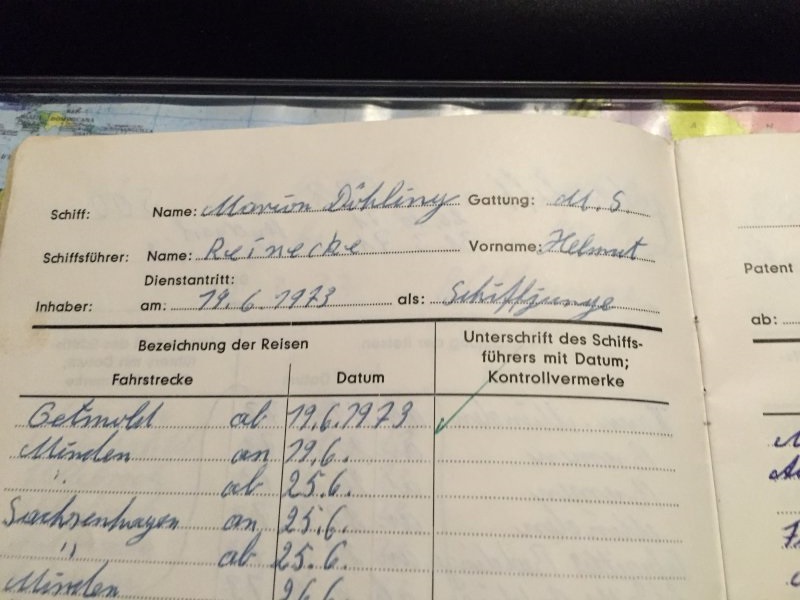 Schiff: Name: Marion Döhling Gattung: M.S.
Schiffsführer: Name: Reinecke Vorname: Helmut
Dienstantritt:
Inhaber: am: 19.6.1973 als: Schiffjunge
Bezeichnung der Reisen
Unterschrift des Schiffs-
führers mit Datum;
Kontrollvermerke
Fahrstrecke Datum
Getmold ab 19.6.1973
Minden an 19.6.
" ab 25.6.
Sachsenhagen an 25.6.
" ab 25.6.
Minden 26.6.
Patent
ab: